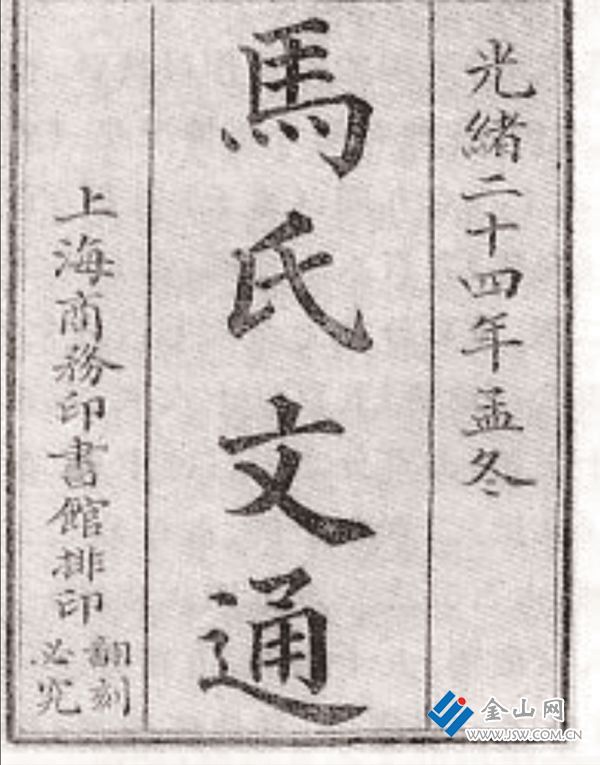 光緒二十四年孟冬
馬氏文通
上海商務印書館排印
翻刻
必究
金山网
www.JSW.COM.CN